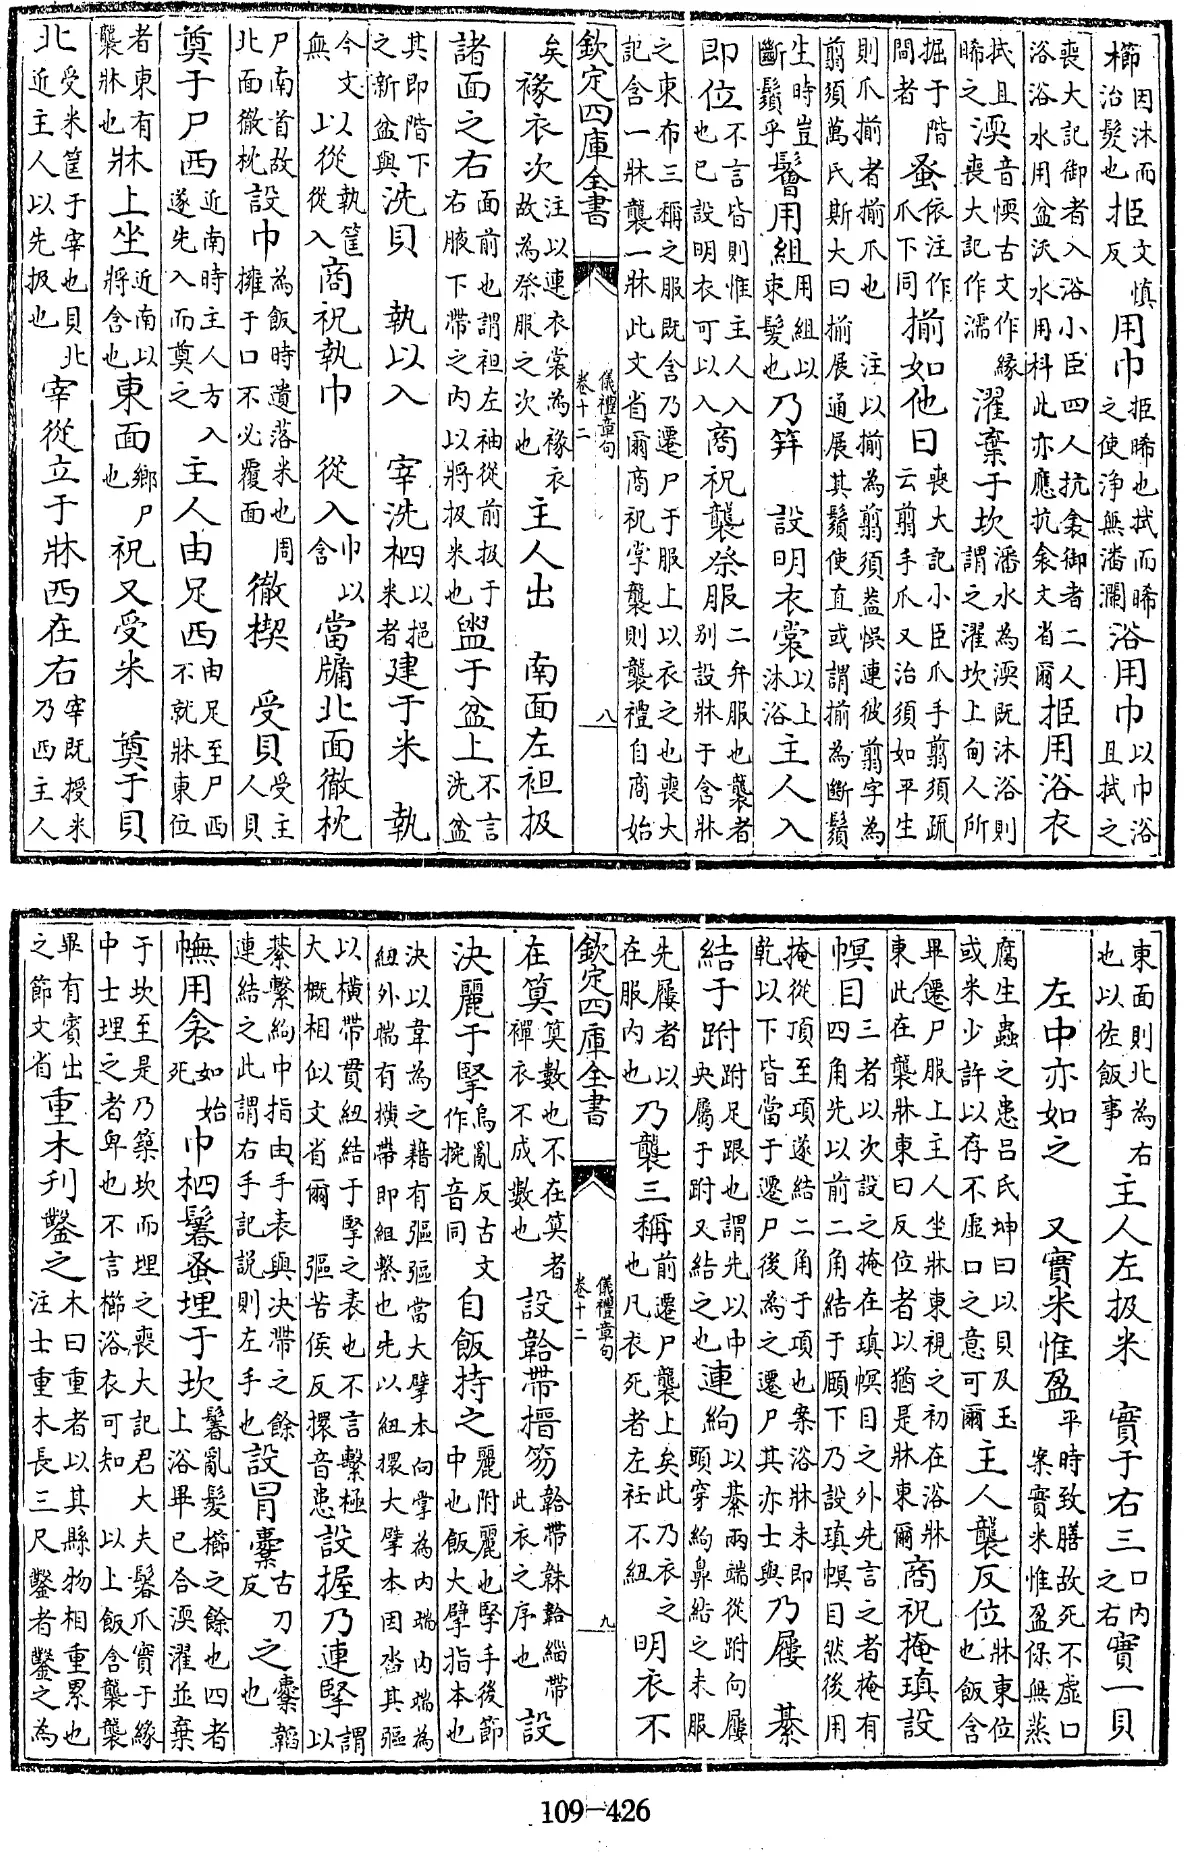 櫛因沐而治髮也挋文慎反用巾挋晞也拭而晞之使浄無潘瀾浴用巾以巾浴且拭之
喪大記御者入浴小臣四人抗衾御者二人浴浴水用盆沃水用枓此亦應抗衾文省爾挋用浴衣
拭且晞之渜音愞古文作縁喪大記作濡濯棄于坎潘水為渜既沐浴則謂之濯坎上甸人所
掘于階間者蚤依注作爪下同揃如他日喪大記小臣爪手翦須疏云翦手爪又治須如平生
則爪揃者揃爪也 注以揃為翦須葢悞連彼翦字為翦須萬氏斯大曰揃展通展其鬚使直或謂揃為斷鬚
生時豈斷鬚乎鬠用組用組以束髮也乃笄 設明衣裳以上沐浴主人入
即位不言皆則惟主人入也已設明衣可以入商祝襲祭服二弁服也襲者别設牀于含牀
之東布三稱之服既含乃遷尸于服上以衣之也喪大記含一牀襲一牀此文省爾商祝掌襲則襲禮自商始
欽定四庫全書 儀禮章句 卷十二 八
矣褖衣次注以連衣裳為褖衣故為祭服之次也主人出 南面左袒扱
諸面之右面前也謂袒左袖從前扱于右腋下帶之内以將扱米也盥于盆上不言洗盆
其即階下之新盆與洗貝 執以入 宰洗柶以挹米者建于米 執
今文無以從執筐從入商祝執巾 從入巾以含當牖北面徹枕
尸南首故北面徹枕設巾為飯時遺落米也周擁于口不必覆面徹楔 受貝受主人貝
奠于尸西近南時主人方入遂先入而奠之主人由足西由足至尸西不就牀東位
者東有牀襲牀也牀上坐近南以將含也東面鄉尸也祝又受米 奠于貝
北受米筐于宰也貝北近主人以先扱也宰從立于牀西在右宰既授米乃西主人
東面則北為右也以佐飯事主人左扱米 實于右三口内之右實一貝
左中亦如之 又實米惟盈平時致膳故死不虛口案實米惟盈保無蒸
腐生蟲之患吕氏坤曰以貝及玉或米少許以存不虛口之意可爾主人襲反位牀東位也飯含
畢遷尸服上主人坐牀東視之初在浴牀東此在襲牀東曰反位者以猶是牀東爾商祝掩瑱設
幎目三者以次設之掩在瑱幎目之外先言之者掩有四角先以前二角結于頤下乃設瑱幎目然後用
掩從頂至項遂結二角于項也案浴牀未即乾以下皆當于遷尸後為之遷尸其亦士與乃屨 綦
結于跗跗足跟也謂先以中央屬于跗又結之也連絇以綦兩端從跗向屨頭穿絇鼻結之未服
先屨者以在服内也乃襲三稱前遷尸襲上矣此乃衣之也凡衣死者左衽不紐明衣不
欽定四庫全書 儀禮章句 卷十二 九
在筭筭數也不在筭者襌衣不成數也設韐帶搢笏韐帶韎韐緇帶此衣之序也設
決麗于掔烏亂反古文作捥音同自飯持之麗附麗也掔手後節中也飯大擘指本也
決以韋為之藉有彄彄當大擘本向掌為内端内端為紐外端有横帶即組繫也先以紐擐大擘本因沓其彄
以横帶貫紐結于掔之表也不言繫極大概相似文省爾 彄苦侯反擐音患設握乃連掔謂以
綦繫絇中指由手表與決帶之餘連結之此謂右手記説則左手也設冒櫜古刀反之櫜韜也
幠用衾如始死巾柶鬊蚤埋于坎鬊亂髮櫛之餘也四者上浴畢已合渜濯並棄
于坎至是乃築坎而埋之喪大記君大夫鬊爪實于緣中士埋之者卑也不言櫛浴衣可知 以上飯含襲襲
畢有賓出之節文省重木刋鑿之木曰重者以其縣物相重累也注士重木長三尺鑿者鑿之為
109-426